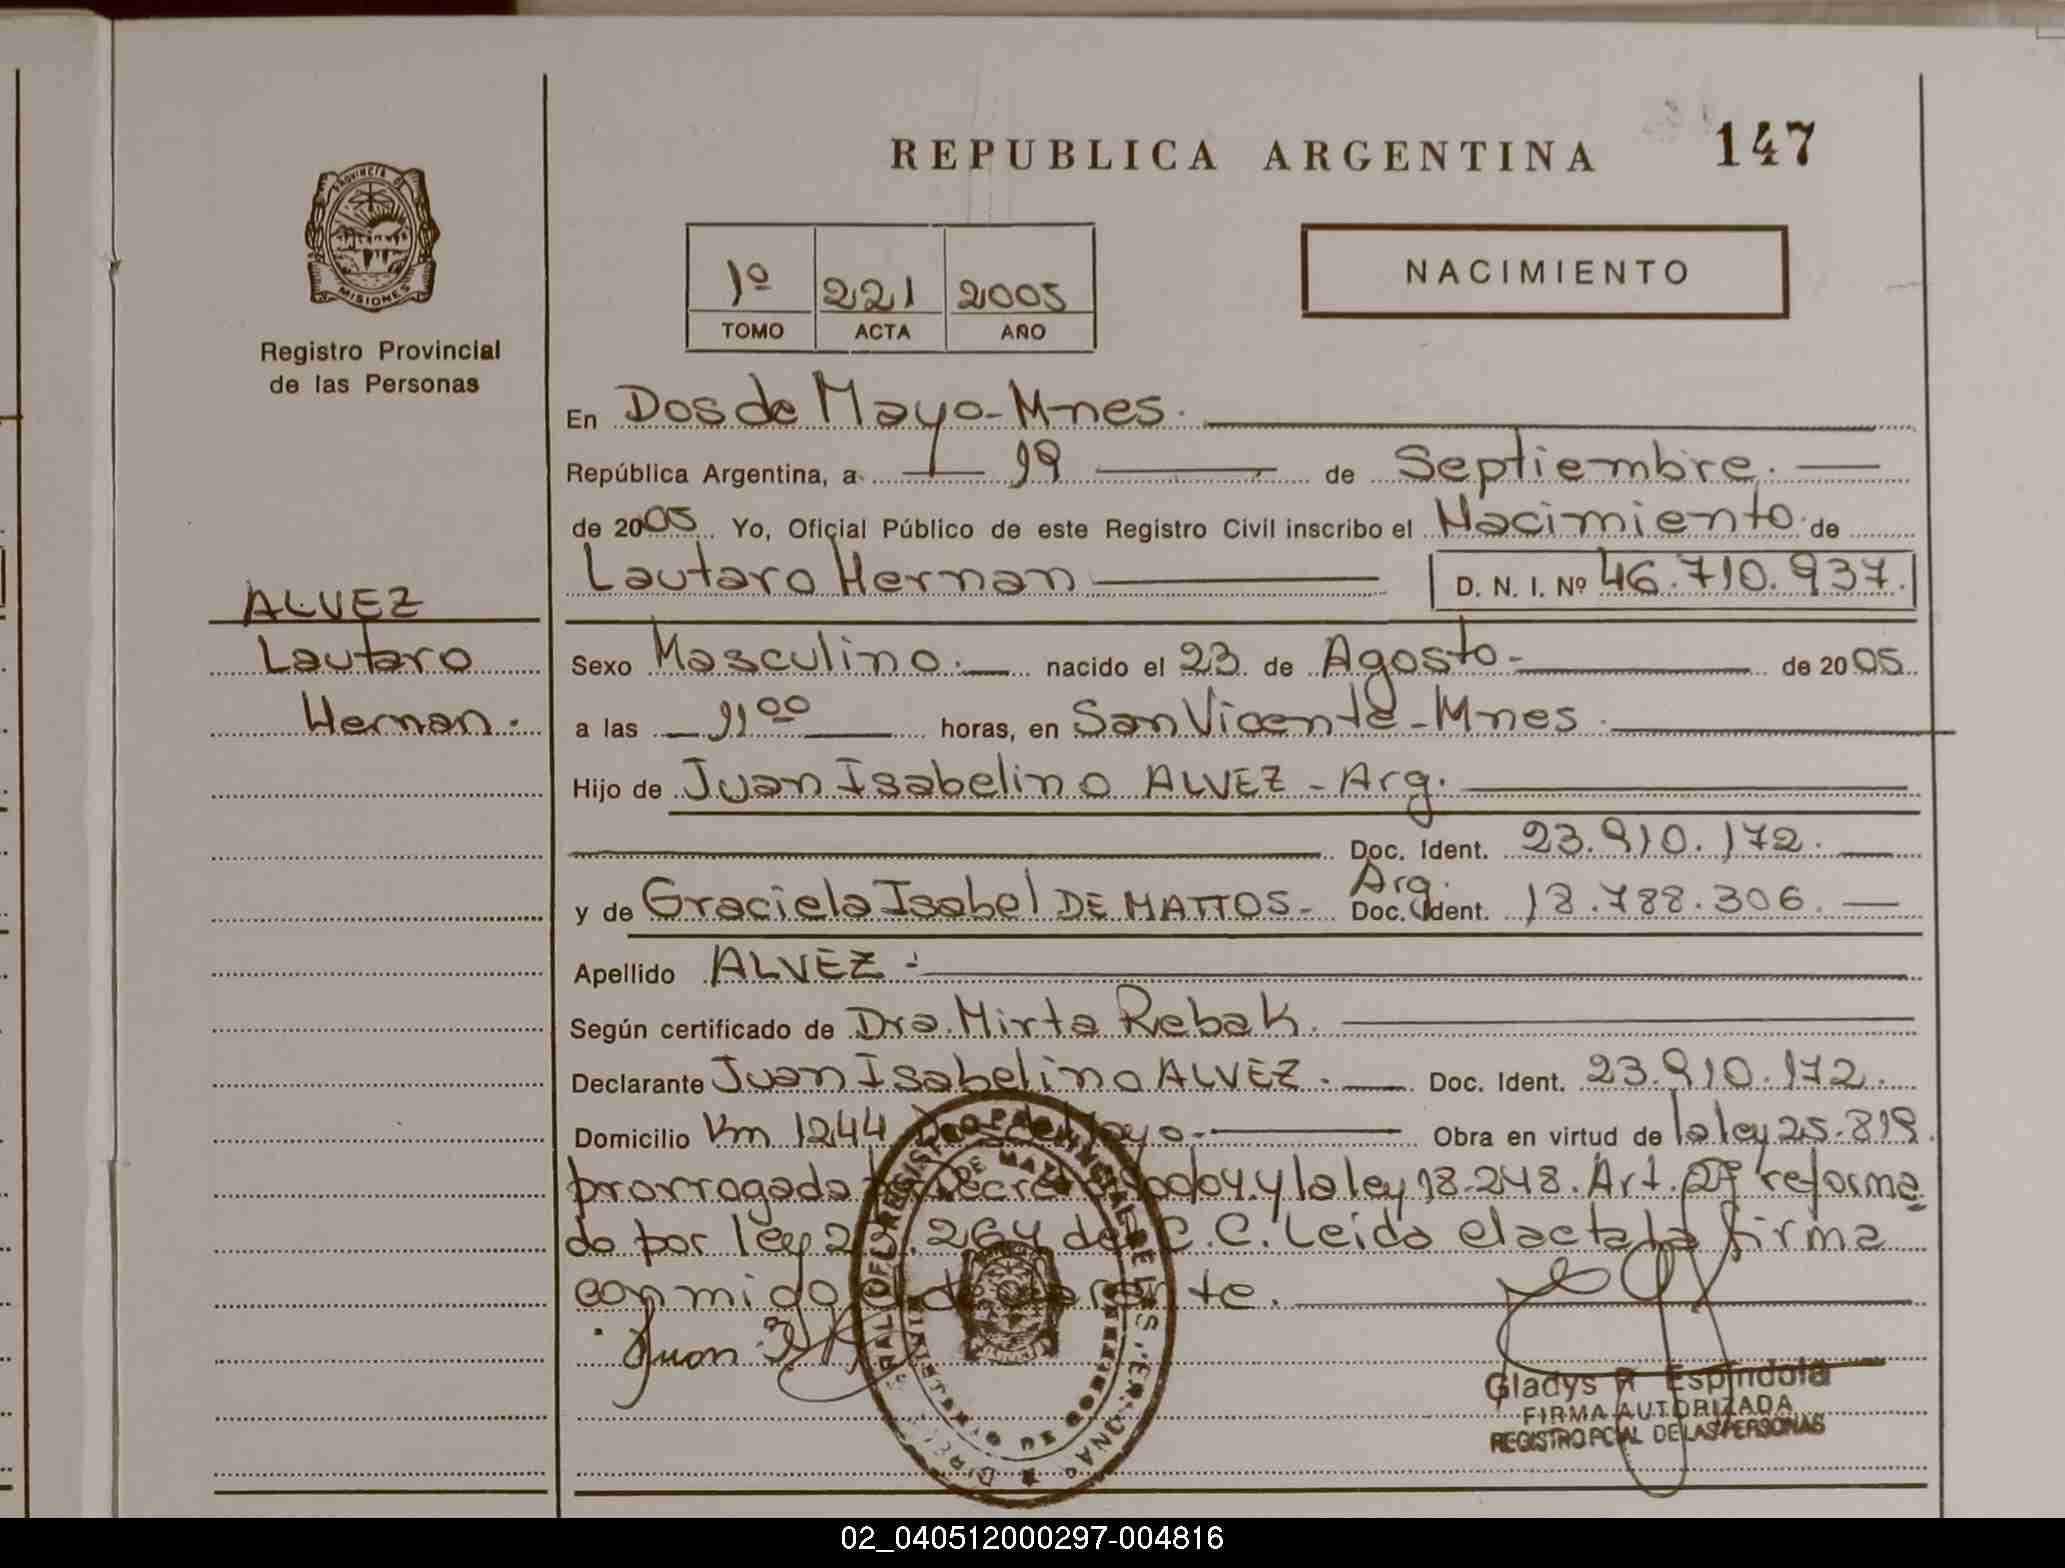 REPUBLICA ARGENTINA 147
PROVINCIA DE
MISIONES
Registro Provincial
de las Personas
1º 221 2005
TOMO ACTA AÑO
NACIMIENTO
En Dos de Mayo-M-nes.
República Argentina, a 19 de Septiembre.
de 2005 Yo, Oficial Público de este Registro Civil inscribo el Nacimiento de
Lautaro Hernan D. N. I. Nº 46.710.937.
ALVEZ
Lautaro
Hernan.
Sexo Masculino. nacido el 23 de Agosto- de 2005
a las 11⁰⁰ horas, en San Vicente-Mnes.
Hijo de Juan Isabelino ALVEZ - Arg.
Doc. Ident. 23.910.172.
y de Graciela Isabel DE MATTOS- Arg. Doc. Ident. 18.788.306.
Apellido ALVEZ.
Según certificado de Dra. Mirta Rebak.
Declarante Juan Isabelino ALVEZ. Doc. Ident. 23.910.172.
Domicilio Km 1244 Dos de Mayo- Obra en virtud de la ley 25.819
prorrogada Decreto y la ley 18.248. Art. reforma
do por ley 23.264 del C.C. Leida el acta la firma
conmigo el declarante.
Juan
Gladys Espindola
FIRMA AUTORIZADA
REGISTRO PCIAL DE LAS PERSONAS
02_040512000297-004816